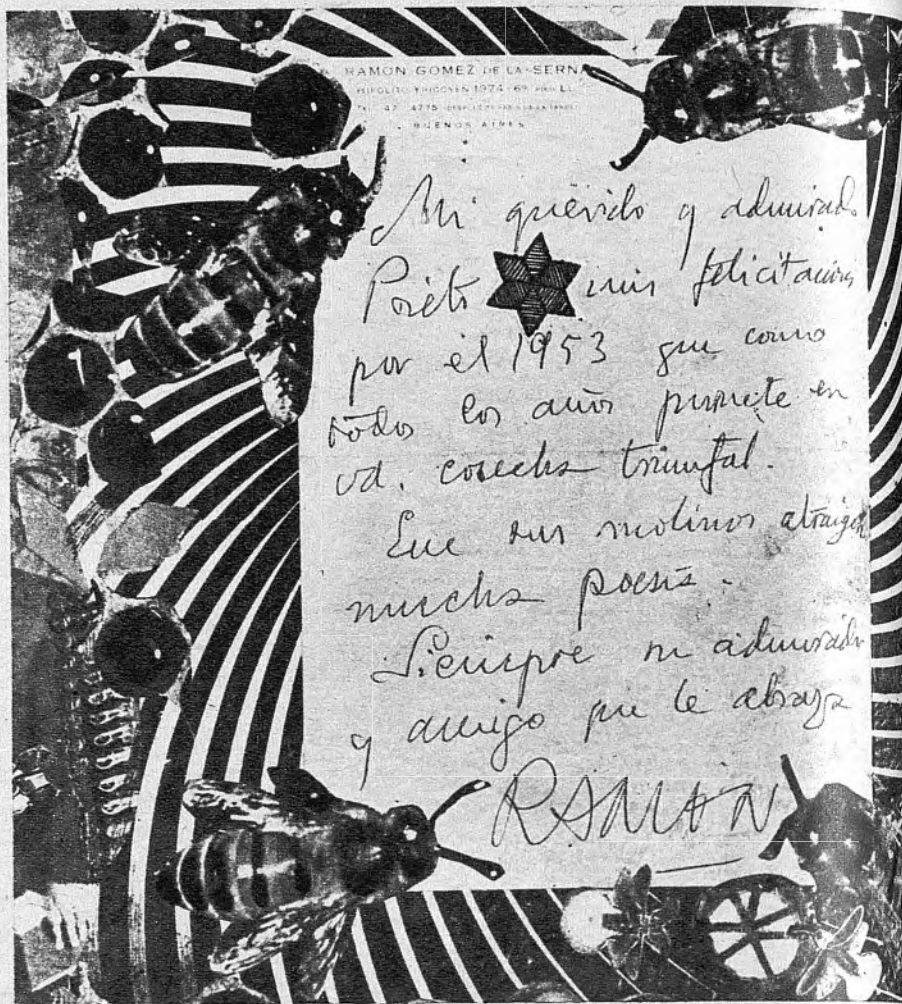 RAMON GOMEZ DE LA SERNA
HIPOLITO YRIGOYEN 1974 - 6º PISO
47 4775
BUENOS AIRES
Mi querido y admirado
Prieto mis felicitaciones
por el 1953 que como
todos los años promete en
vd. cosecha triunfal.
Que sus molinos atraigan
mucha poesía.
Siempre su admirador
y amigo que le abraza
RAMÓN